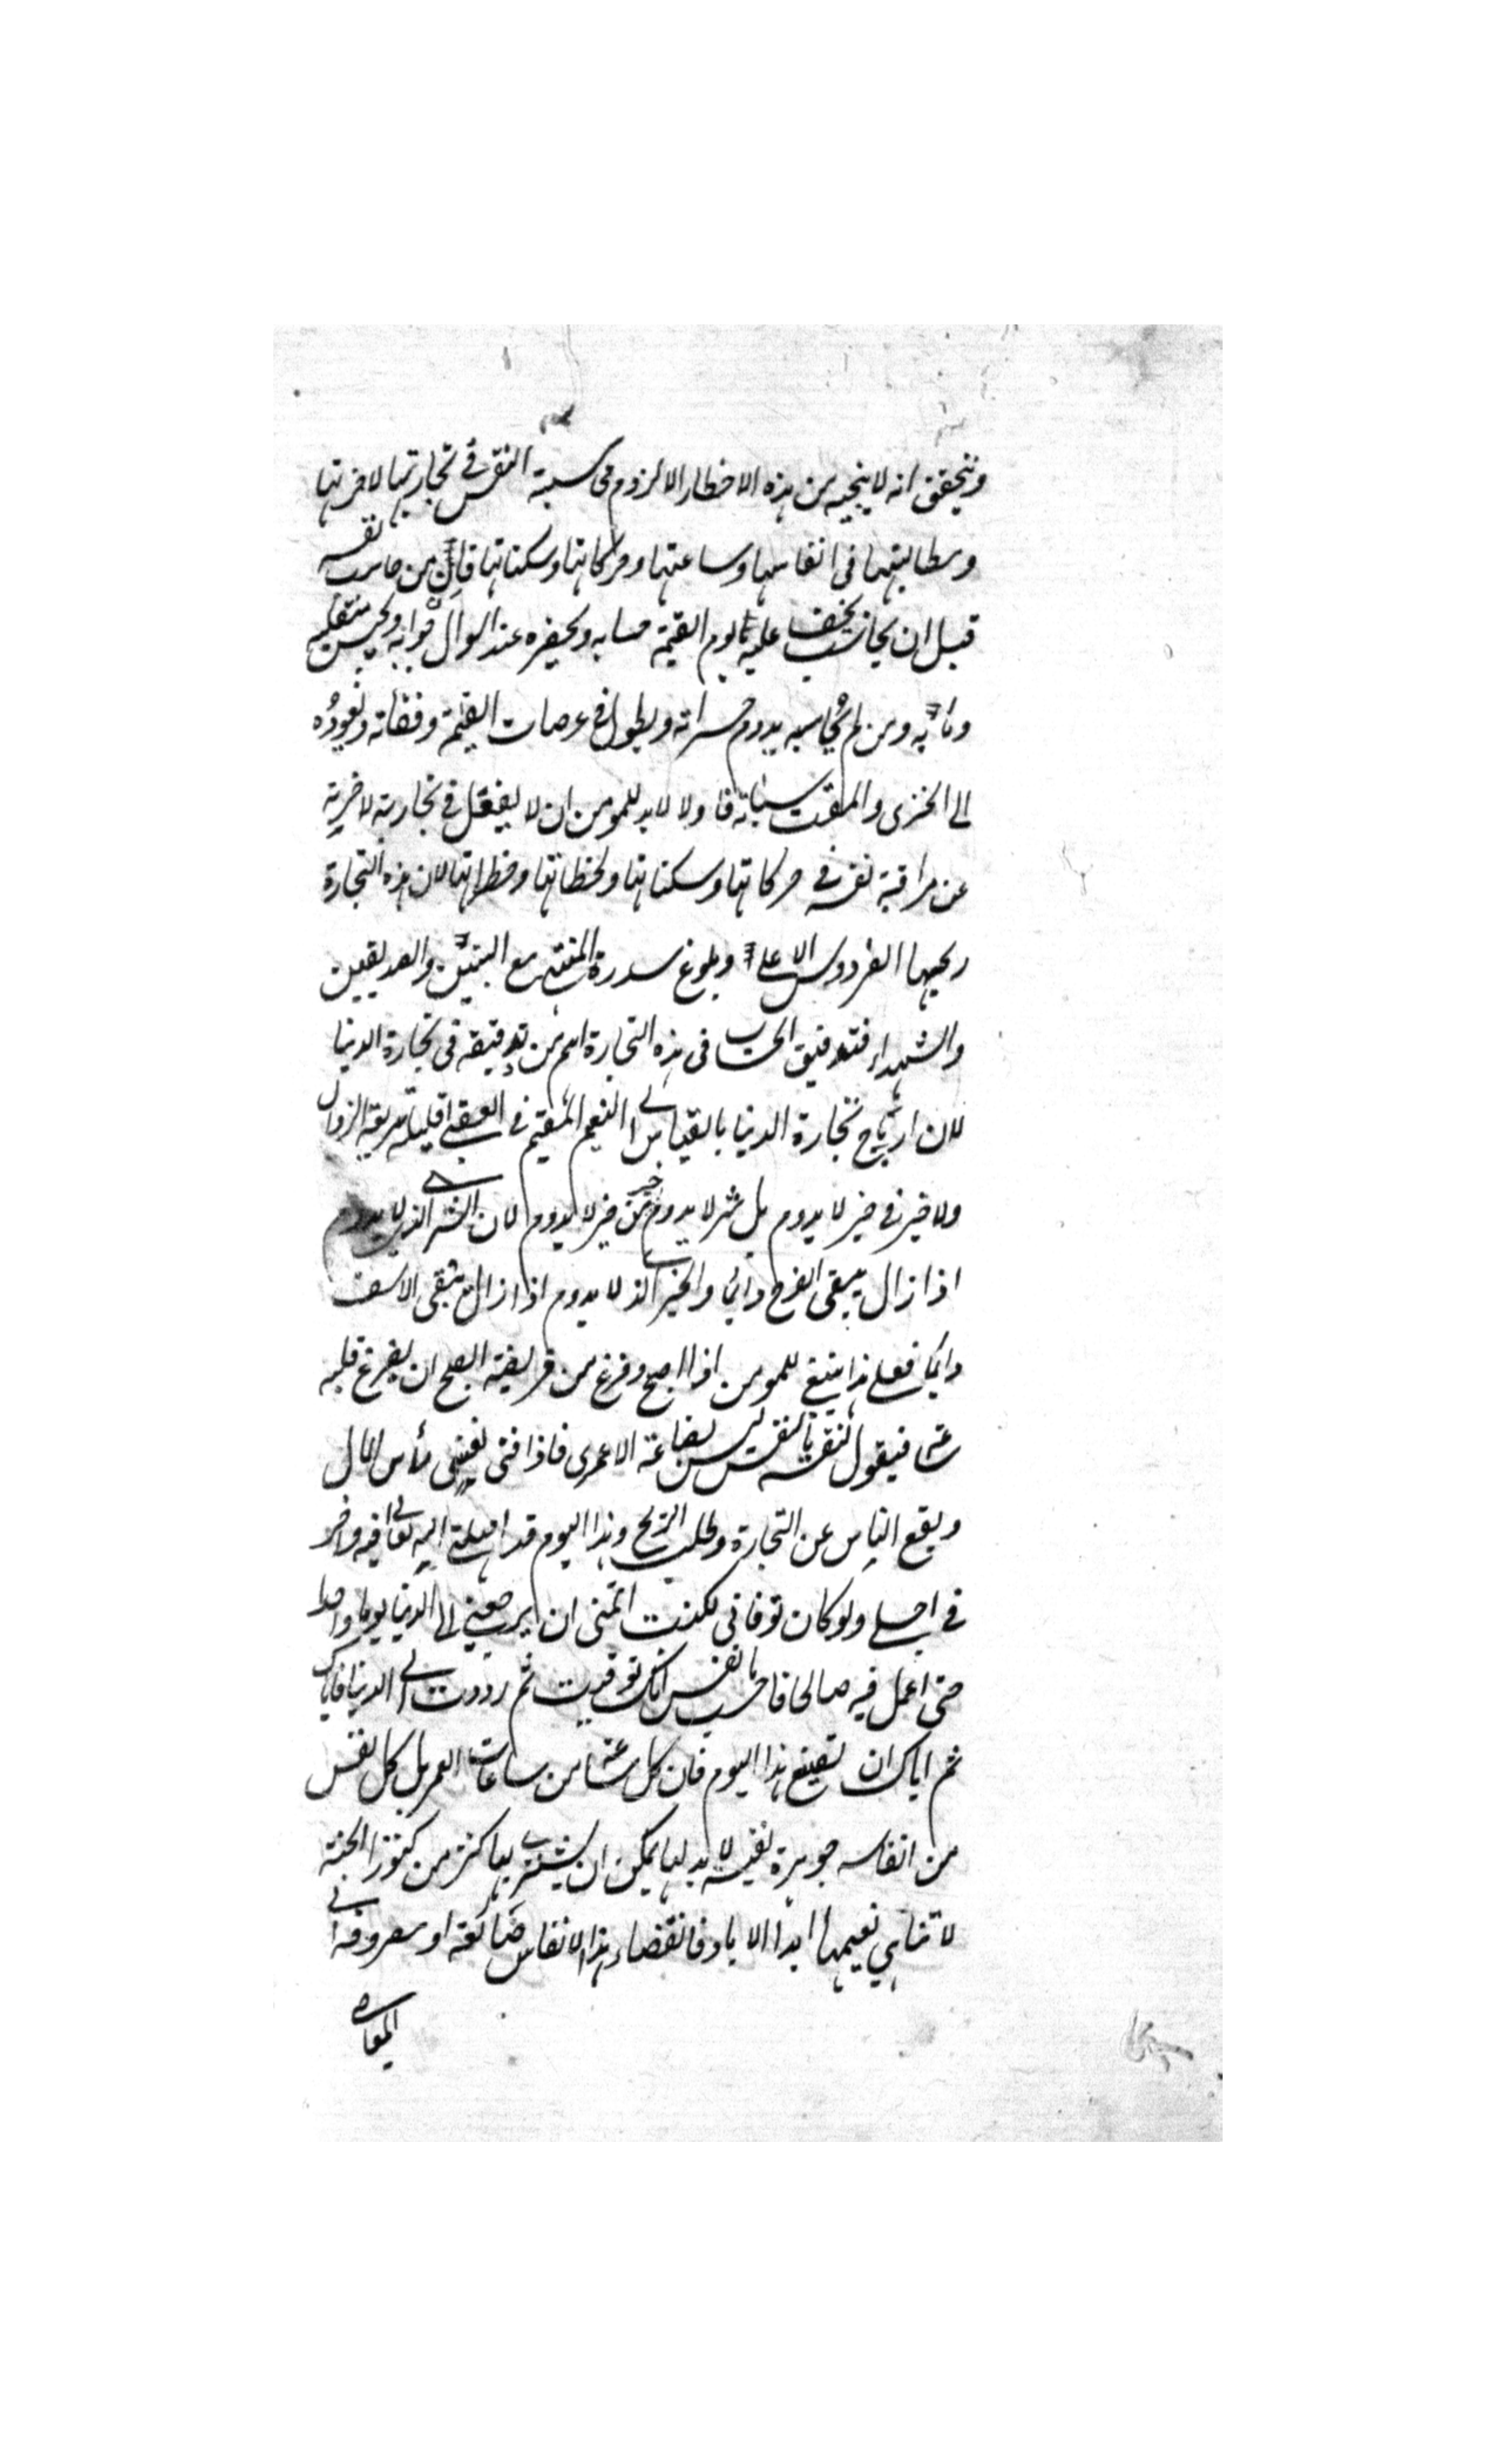 ويتحقق انه لا ينجيه من هذه الاخطار الا لزوم محاسبة النفس في تجارتها لاخرتها
ومطالبتها في انفاسها وساعتها وحركاتها وسكناتها فان من حاسب نفسه
قبل ان يحاسب يخف عليه يوم القيمة حسابه ويحضره عند السوال جوابه ويحسن منقلبه
ومأبه ومن لم يحاسبه يدوم حسراته ويطول في عرصات القيمة وقفاته ويعوده
الى الخزى والمقت سيأته فاولا لابد للمومن ان لا يغفل في تجارته لاخريته
عن مراقبة نفسه في حركاتها وسكناتها ولحظاتها وخطراتها لان هذه التجارة
ربحها الفردوس الاعلى وبلوغ سدرة المنتهى مع النبيين والصديقين
والشهداء فتدقيق الحساب فى هذه التجارة اهم من تدقيقه فى تجارة الدنيا
لان ارباح تجارة الدنيا بالقياس الى النعيم المقيم في العقبى قليلة سريعة الزوال
ولا خير في خير لا يدوم بل شر لا يدوم خير من خير لا يدوم لان الشر الذى لا يدوم
اذا زال يبقى الفرح دايما والخير الذى لا يدوم اذا زال يبقى الاسف
دايما فعلى هذا ينبغى للمومن اذا اصبح وفرغ من فريضة الصبح ان يفرغ قلبه
ساعة فيقول لنفسه يا نفس ليس بضاعة الا عمرى فاذا فنى يفنى رأس المال
ويقع الياس عن التجارة وطلب الربح وهذا اليوم قد امهلنى الله تعالى فيه واخر
في اجلى ولو كان توفانى لكنت اتمنى ان يرجعنى الى الدنيا يوما واحدا
حتى اعمل فيه صالحا فاحسب يا نفس انك توفيت ثم رددت الى الدنيا فاياك
ثم اياك ان تضيع هذا اليوم فان كل ساعة من ساعات العمر بل كل نفس
من انفاسه جوهرة نفيسة لا بد لها يمكن ان يشترى بها كنز من كنوز الجنة
لا تناهي نعيمها ابدا الاباد فانقضاء هذا الانفاس ضائعة او مصروفة الى
المعاصى